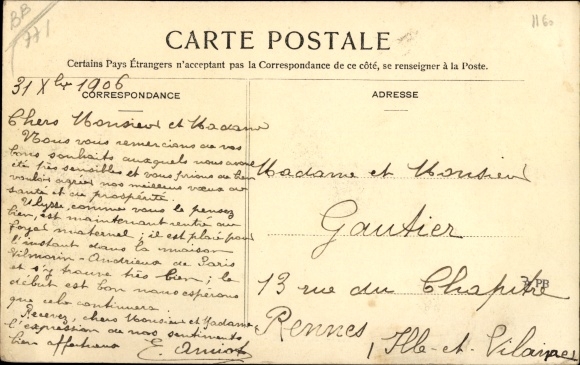 BB
771
1160
CARTE POSTALE
Certains Pays Étrangers n'acceptant pas la Correspondance de ce côté, se renseigner à la Poste.
31 Xbr 1906
CORRESPONDANCE
Chers Monsieur et Madame
Nous vous remercions de vos
bons souhaits auxquels nous avons
été très sensibles et vous prions de bien
vouloir agréer nos meilleurs vœux de
santé et de prospérité.
Ulysse, comme vous le pensez
bien, est maintenant rentré au
foyer maternel ; il est placé pour
l'instant dans la maison
Vilmorin-Andrieux de Paris
et s'y trouve très bien ; le
début est bon nous espérons
que cela continuera
Recevez, chers Monsieur et Madame
l'expression de nos sentiments
bien affectueux
E. Amiot
ADRESSE
Madame et Monsieur
Gautier
13 rue du Chapitre
PB
Rennes
Ille-et-Vilaine